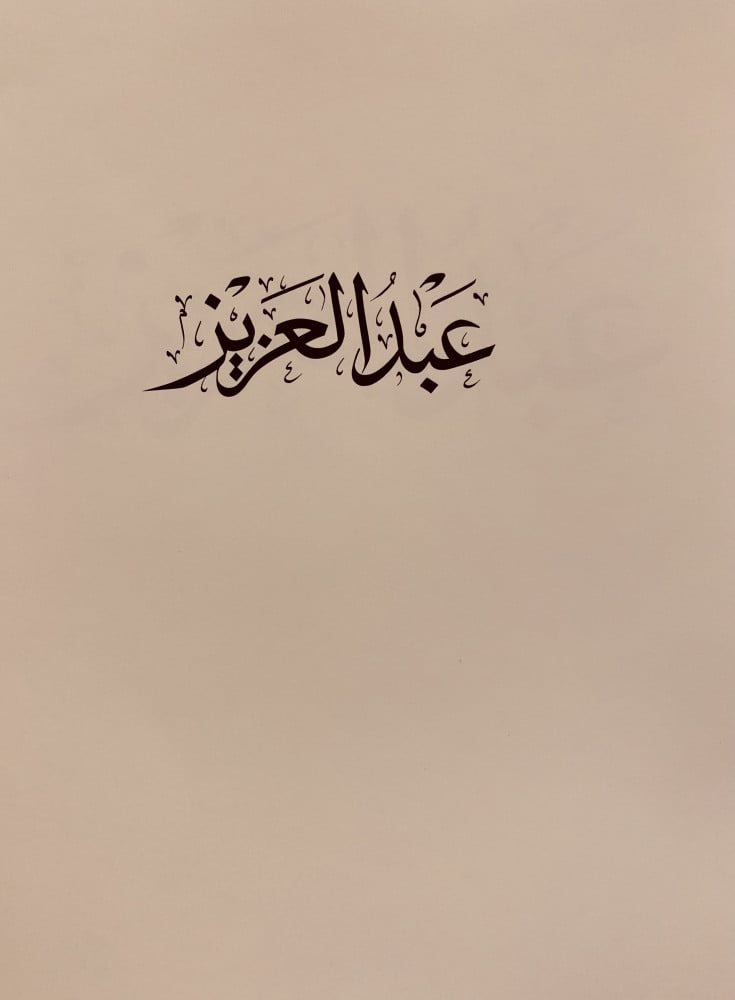 عَبْدُالعَزِيْز